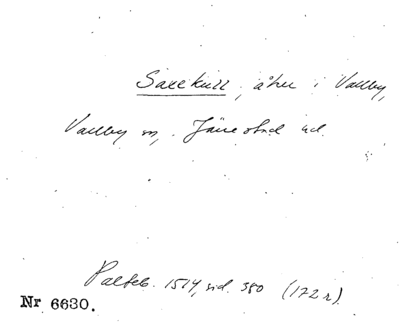 Saxekull, åker i Vallby,
Vallby sn, Järrestad hd.
Palteb. 1514, sid. 380 (172 r).
Nr 6630.